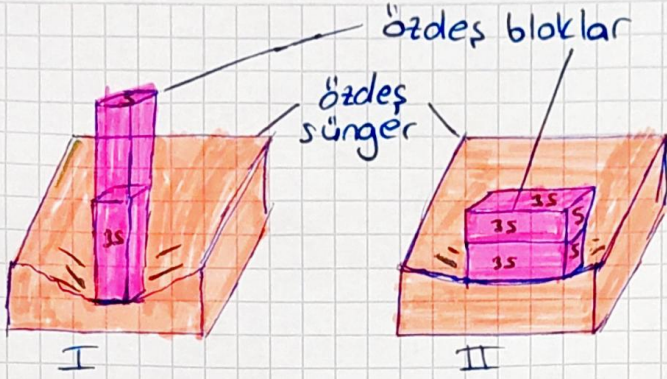 özdeş bloklar
özdeş
sünger
S
3S
3S
3S
S
3S
S
I
II